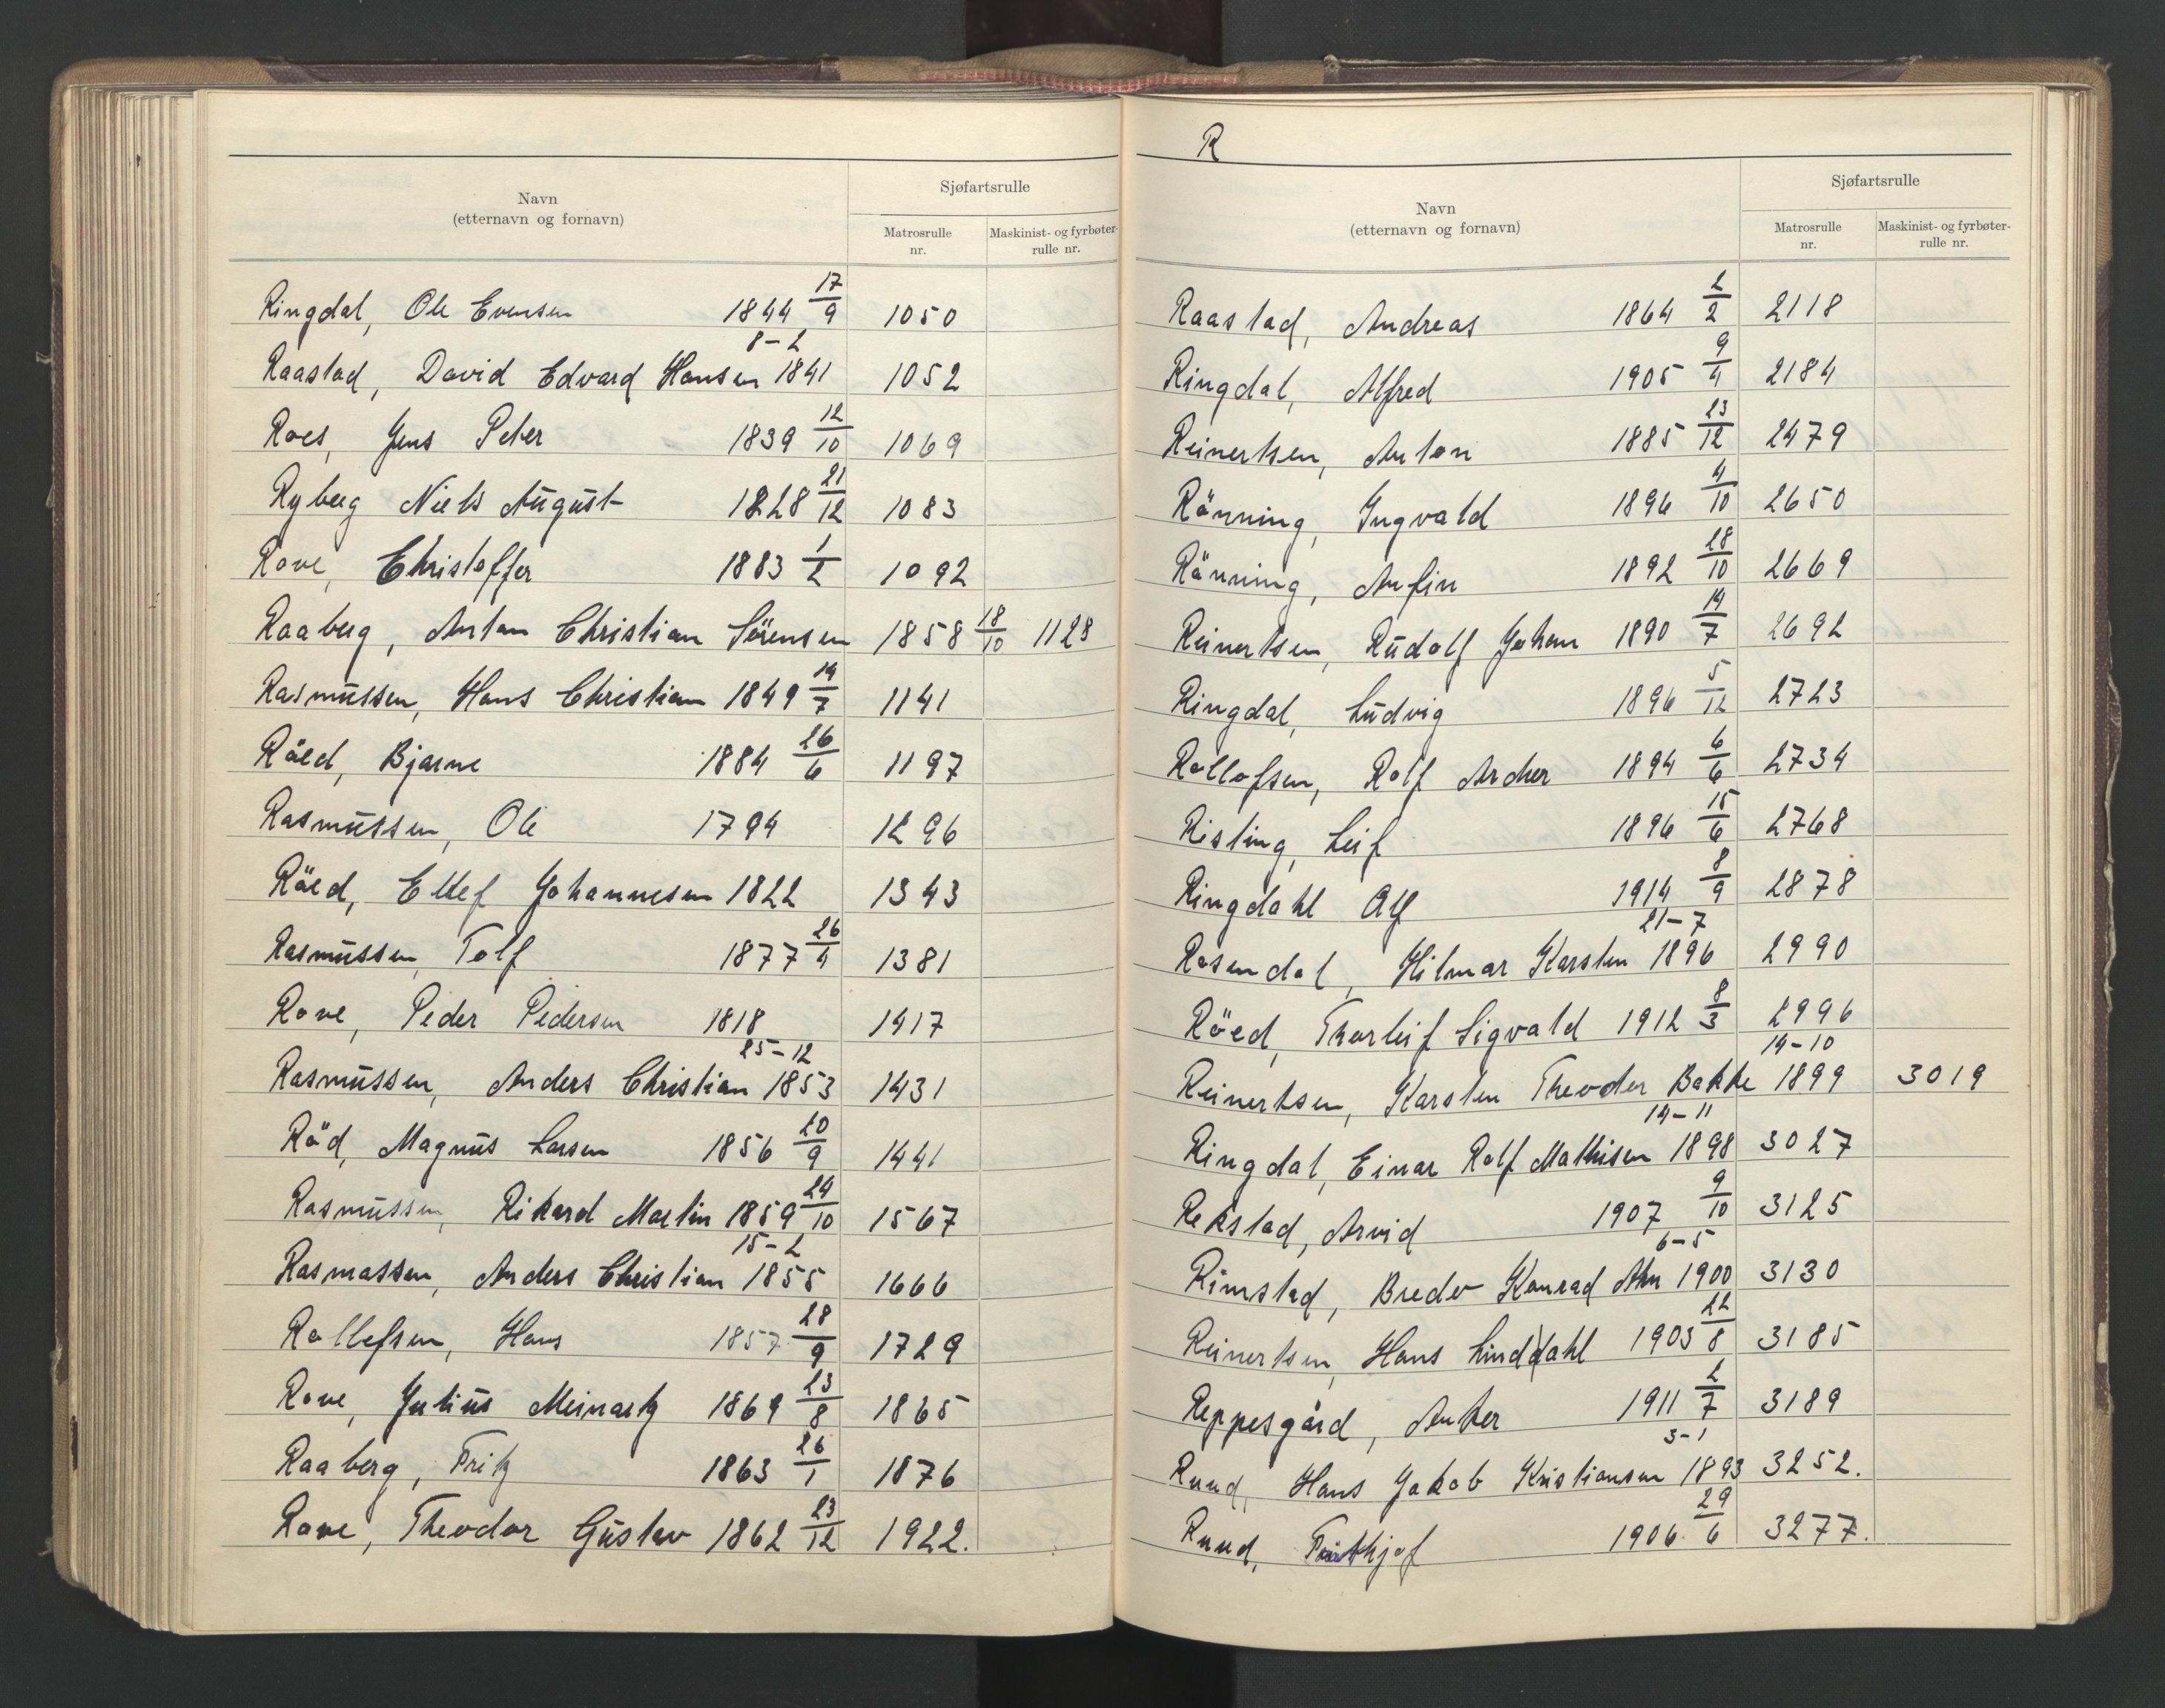 Navn
(etternavn og fornavn)
Sjøfartsrulle
Matrosrulle nr.
Maskinist- og fyrbøter-rulle nr.
Ringdal, Ole Evensen 1844 17/9 1050
Raastad, David Edvard Hansen 8-2 1841 1052
Roes, Jens Peter 1839 12/10 1069
Ryberg Niels August 1828 21/12 1083
Rove, Christoffer 1883 1/2 1092
Raaberg, Anton Christian Sörensen 1858 18/10 1128
Rasmussen, Hans Christian 1849 14/7 1141
Röed, Bjarne 1884 26/6 1197
Rasmussen, Ole 1794 1296
Röed, Ellef Johannesen 1822 1343
Rasmussen, Tolf 1877 26/4 1381
Rove, Peder Pedersen 1818 1417
Rasmussen, Anders Christian 25-12 1853 1431
Röd, Magnus Larsen 1856 20/9 1441
Rasmussen, Rikard Martin 1859 24/10 1567
Rasmassen, Anders Christian 15-2 1855 1666
Rollefsen, Hans 1857 28/9 1729
Rove, Julius Meinartz 1869 23/8 1865
Raaberg, Fritz 1863 26/1 1876
Rove, Theodor Gustav 1862 23/12 1922.
R
Navn
(etternavn og fornavn)
Sjøfartsrulle
Matrosrulle nr.
Maskinist- og fyrbøter-rulle nr.
Raastad, Andreas 1864 2/2 2118
Ringdal, Alfred 1905 9/4 2184
Reinertsen, Anton 1885 23/12 2479
Rönning, Ingvald 1896 4/10 2650
Rönning, Anfin 1892 28/10 2669
Reinertsen, Rudolf Johan 1890 14/7 2692
Ringdal, Ludvig 1896 5/12 2723
Rollofsen, Rolf Archer 1894 6/6 2734
Risting, Leif 1896 15/6 2768
Ringdahl Alf 1914 8/9 2878
Rosendal, Hilmar Karsten 21-7 1896 2990
Röed, Thorleif Sigvald 1912 8/3 2996
Reinertsen, Karsten Theodor Bakke 14-10 1899 3019
Ringdal, Einar Rolf Mathisen 14-11 1898 3027
Rekstad, Arvid 1907 9/10 3125
Rimstad, Bredo Konrad Ahn 6-5 1900 3130
Reinertsen, Hans Linddahl 1903 22/8 3185
Reppesgård, Anker 1911 2/7 3189
Ruud, Hans Jakob Kristiansen 3-1 1893 3252.
Ruud, Frithjof 1906 29/6 3277.